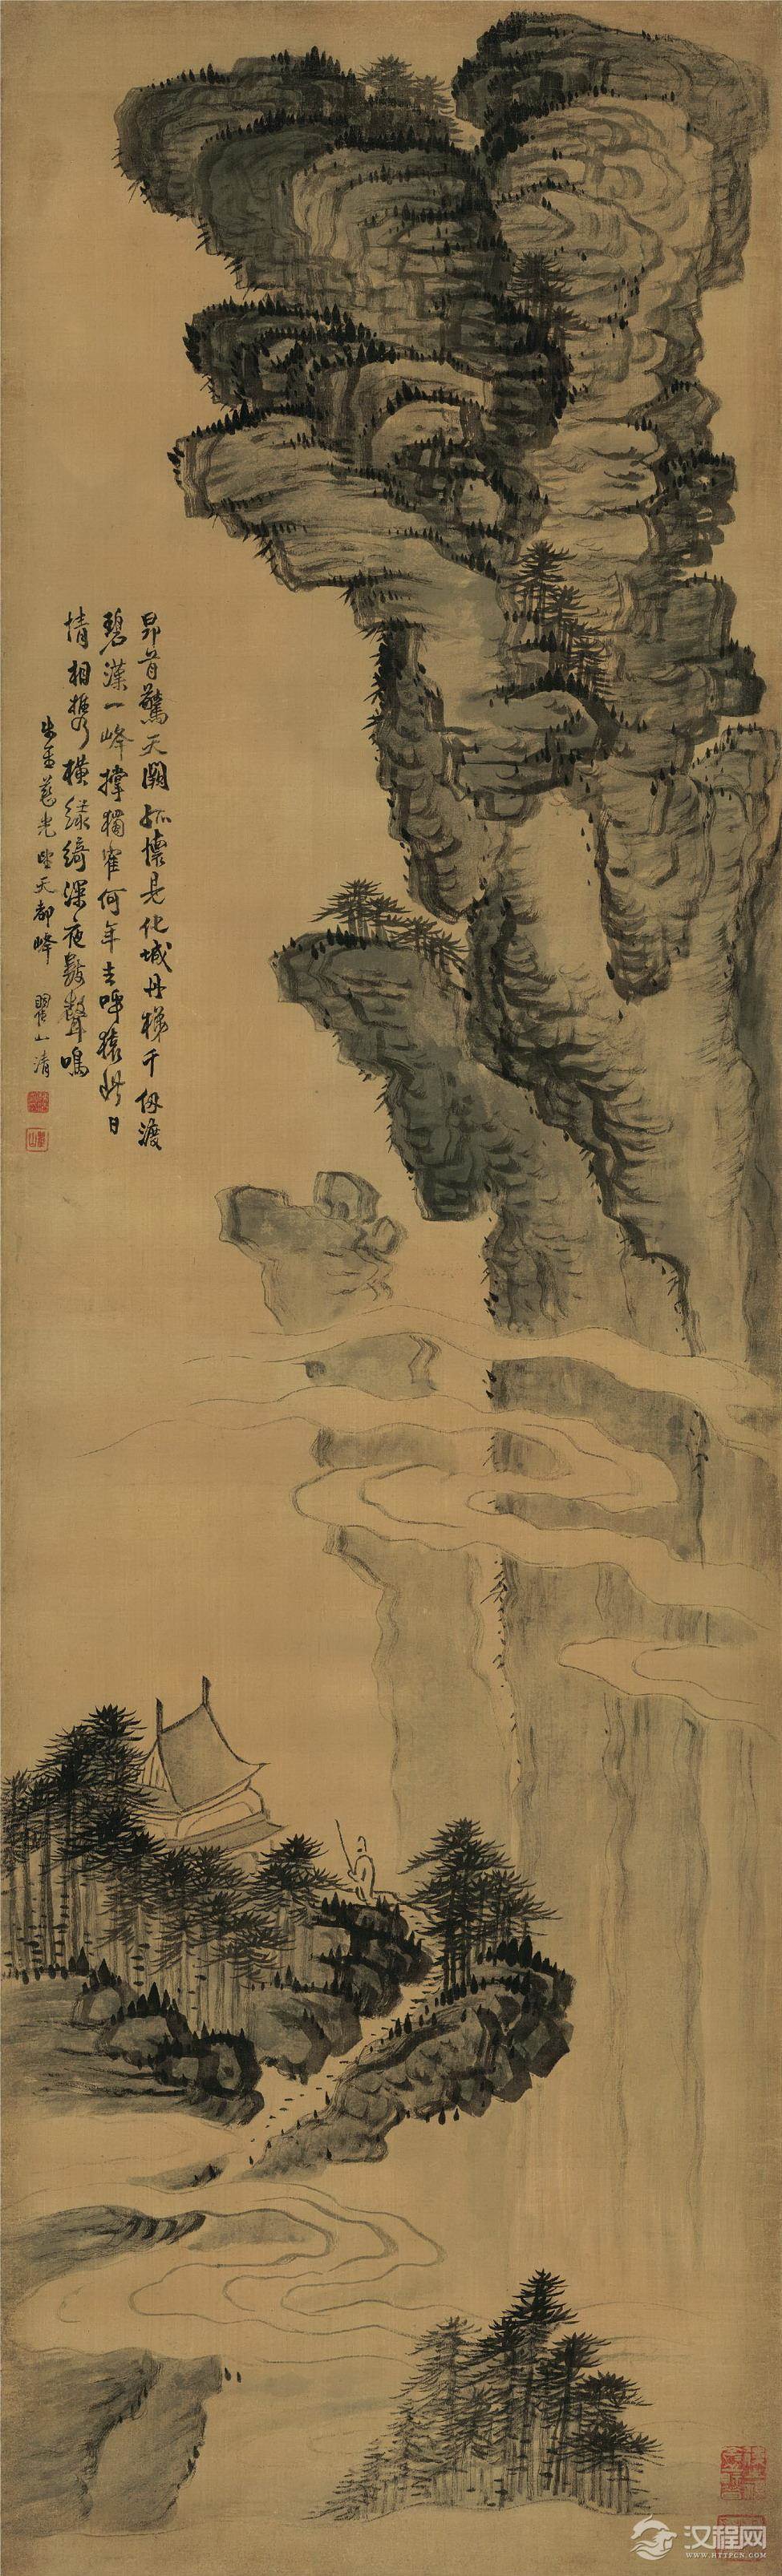 昂首驚天闕孤懷是化城丹梯千仞渡
碧漢一峰撐獨雀何年去呼猿此日
情相攜橫綠綺深夜數聲鳴
朱查慈光望天都峰　瞿山清
汉程网
WWW.HTTPCN.COM